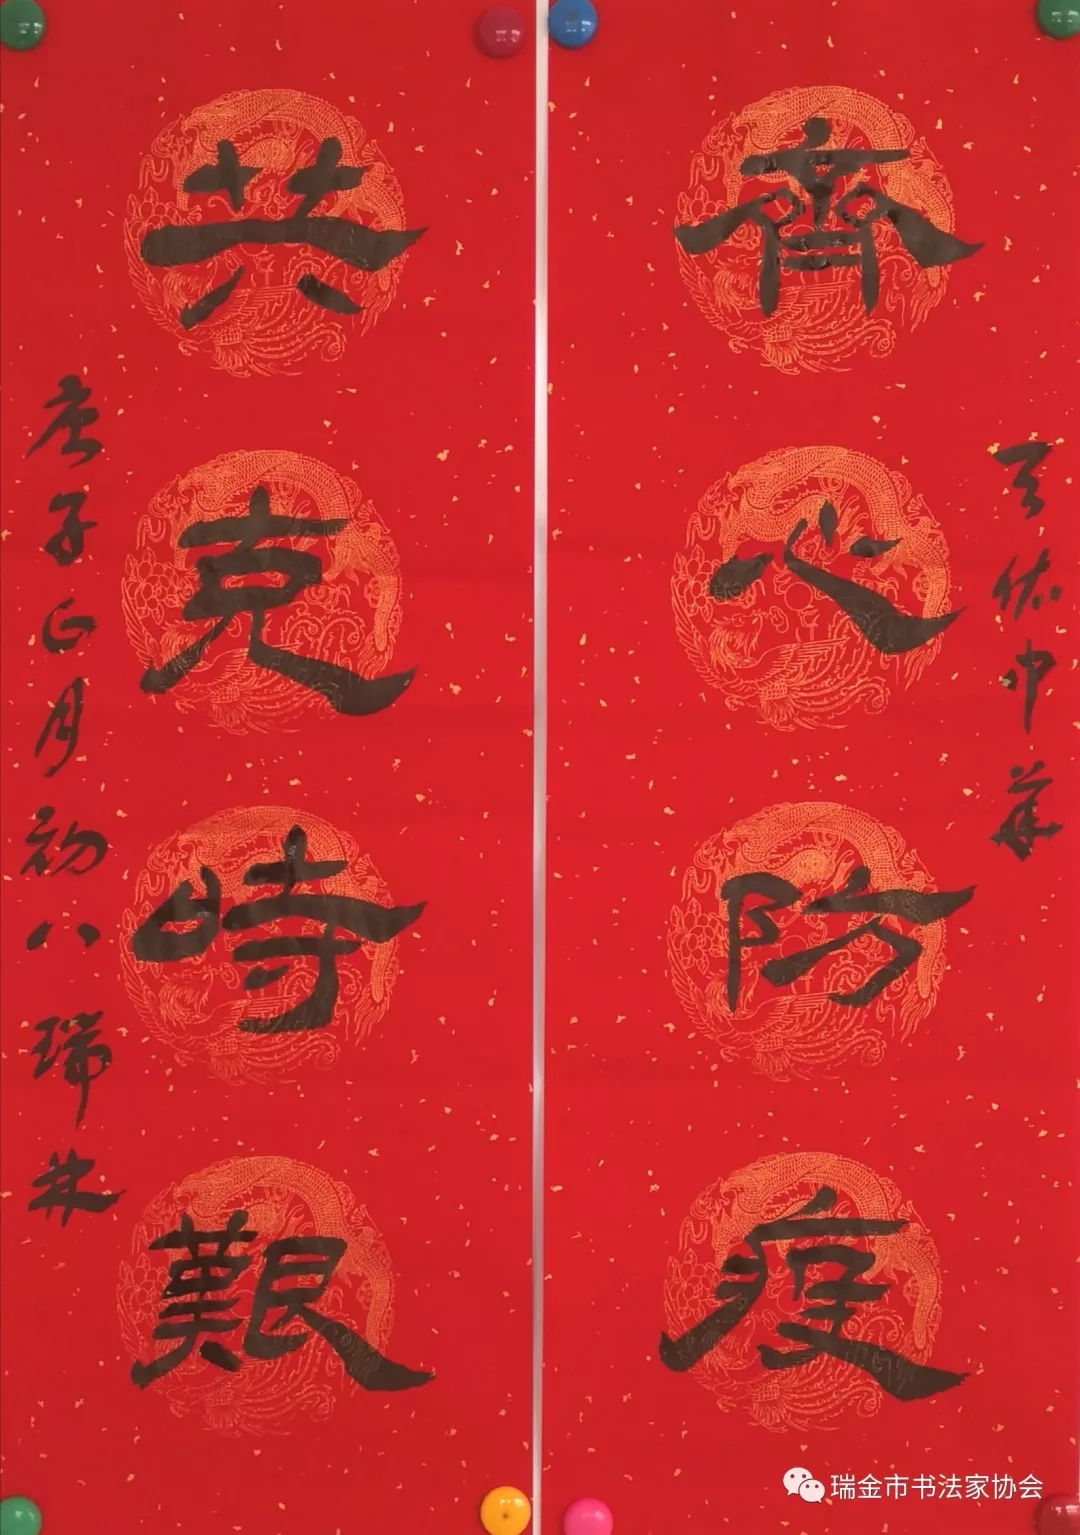 天佑中華
齊心防疫
共克時艱
庚子正月初八瑞林
瑞金市书法家协会